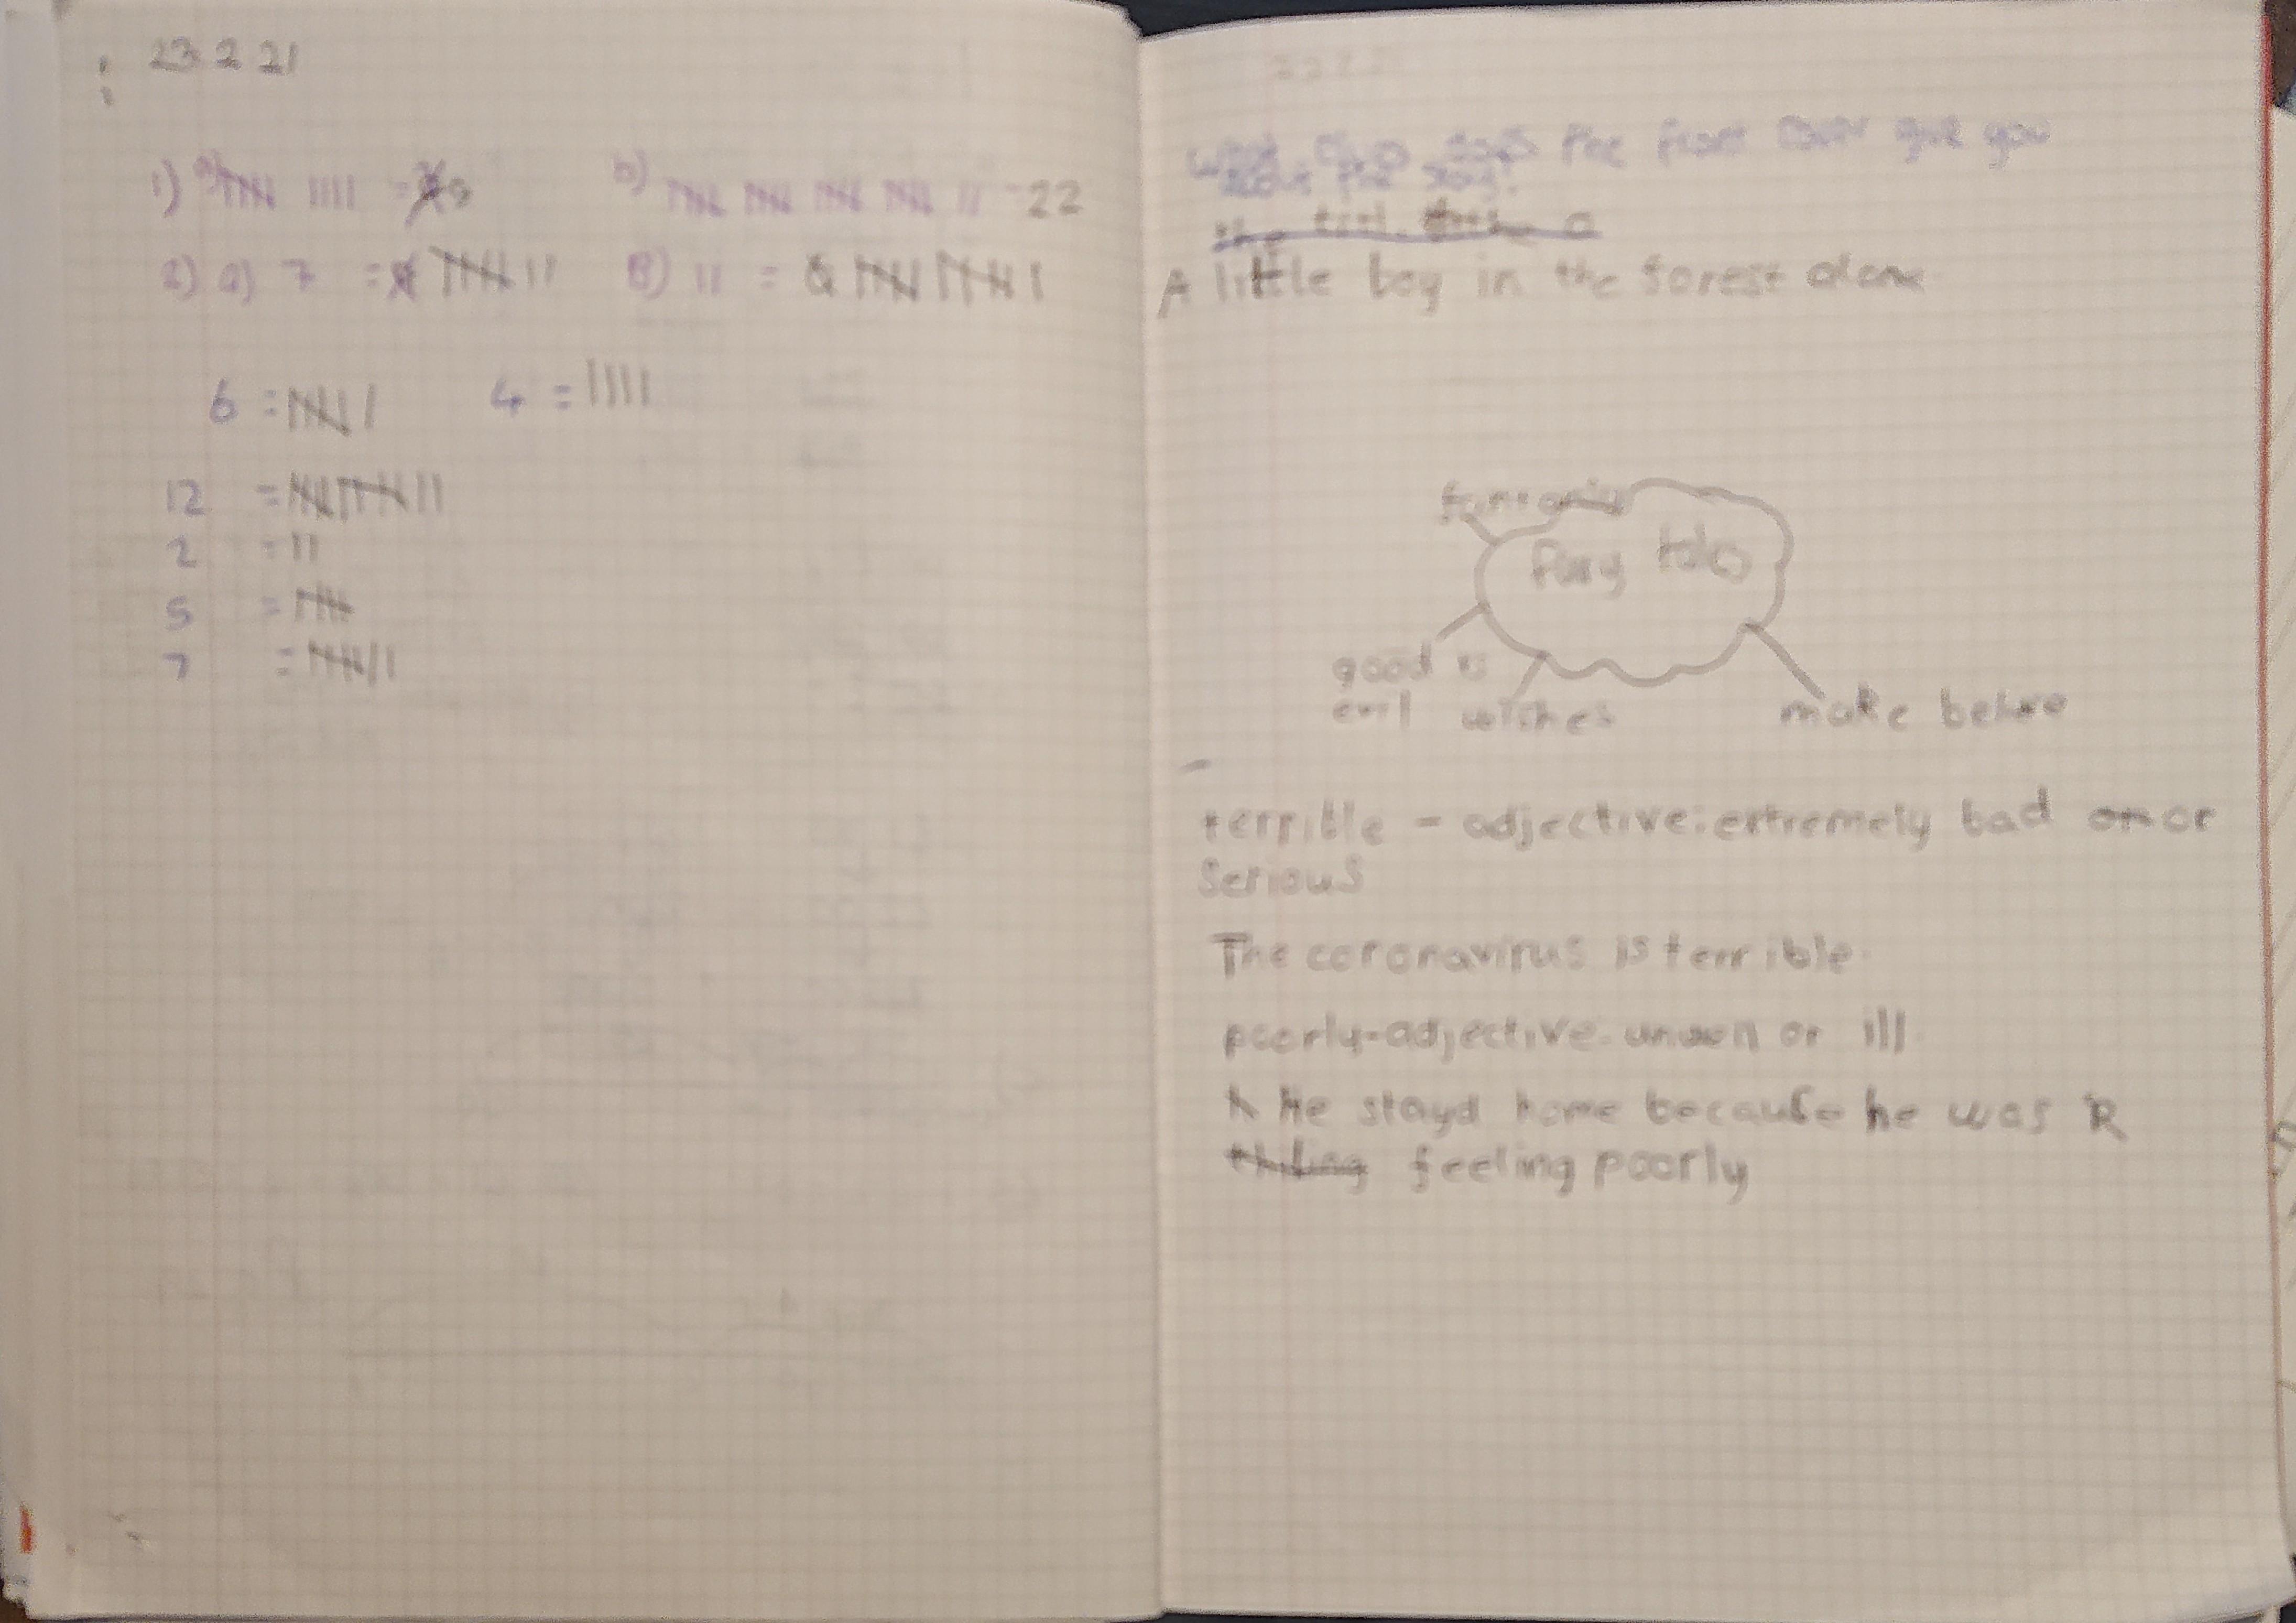 23 2 21
1) a) 𝍸 |||| = 9
b) 𝍸 𝍸 𝍸 𝍸 || = 22
2) a) 7 = 𝍸 ||
B) 11 = 𝍸 𝍸 |
6 = 𝍸 |
4 = ||||
12 = 𝍸 𝍸 ||
2 = ||
5 = 𝍸
7 = 𝍸 ||
What clues does the front cover give you
about the story?
A little boy in the forest alone
Fairy tales
good vs
evil
wishes
make believe
terrible - adjective: extremely bad or
Serious
The coronavirus is terrible.
poorly-adjective. unwell or ill.
He stayd home because he was
feeling poorly